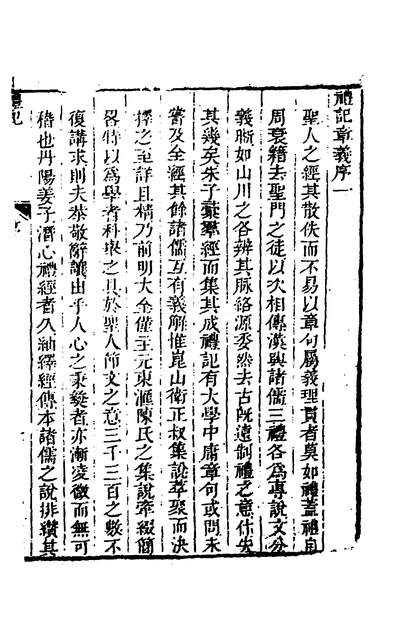 禮記章義序一
聖人之經其散佚而不易以章句屬義理貫者莫如禮蓋禮自
周衰籍去聖門之徒以次相傳漢興諸儒三禮各為專說文分
義斷如山川之各辨其脉絡源委然去古既遠制禮之意什失
其幾矣朱子彙羣經而集其成禮記有大學中庸章句或問未
嘗及全經其餘諸儒互有義解惟崑山衛正叔集說萃聚而決
擇之至詳且精乃前明大全僅主元東滙陳氏之集說牽綴簡
畧特以為學者科舉之具於聖人節文之意三千三百之數不
復講求則夫恭敬辭讓出乎人心之秉彝者亦漸凌微而無可
稽也丹陽姜子潛心禮經者久紬繹經傳本諸儒之說排纘其
禮記
序